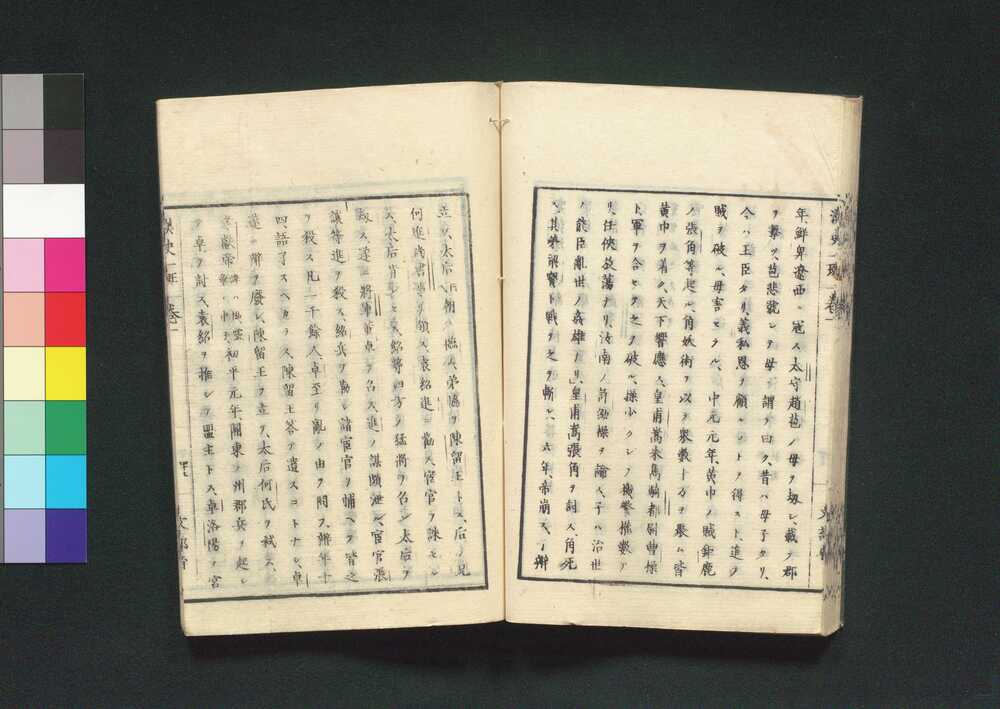 年、鮮卑遼西ニ冦ス、太守趙苞ノ母ヲ刼シ、載テ郡
ヲ擊ツ、苞悲號シテ母ニ謂テ曰ク、昔ハ母子タリ、
今ハ王臣タリ、義私恩ヲ顧ルコトヲ得スト、進テ
賊ヲ破ル、母害セラル、中元元年、黃巾ノ賊鉅鹿
ノ張角等起ル、角妖術ヲ以テ衆數十万ヲ聚ム、皆
黃巾ヲ着ク、天下響應ス、皇甫嵩朱儁騎都尉曹操
ト軍ヲ合セテ之ヲ破ル、操少クシテ機警權數ア
リ、任俠放蕩ナリ、汝南ノ許劭操ヲ論ス、子ハ治世
ノ能臣亂世ノ姦雄ナリ、皇甫嵩張角ヲ討ス、角死
ス、其弟梁寶ト戰テ之ヲ斬ル、六年、帝崩ス、子辯
立ツ、太后朝ニ臨ム、弟協ヲ陳留王トス、后ノ兄
何進尚書事ヲ領ス、袁紹進ニ勸ム、宦官ヲ誅セン
ト、太后肯ンセス、紹等四方ノ猛將ヲ召シ、太后ヲ
ス、遂ニ將軍董卓ヲ召ス、進ノ謀頗泄ル、宦官張
讓等進ヲ殺ス、紹兵ヲ勒シ諸宦官ヲ捕ヘテ皆之
ヲ殺ス、凡二千餘人、卓至リ亂ノ由ヲ問フ、辯年十
四、語了スヘカラス、陳留王答テ遺スコトナシ、卓
遂ニ辯ヲ廢シ、陳留王ヲ立ツ、太后何氏ヲ弑ス、
獻帝初平元年、關東ノ州郡兵ヲ起シ
テ卓ヲ討ス、袁紹ヲ推シテ盟主トス、卓洛陽ノ宮